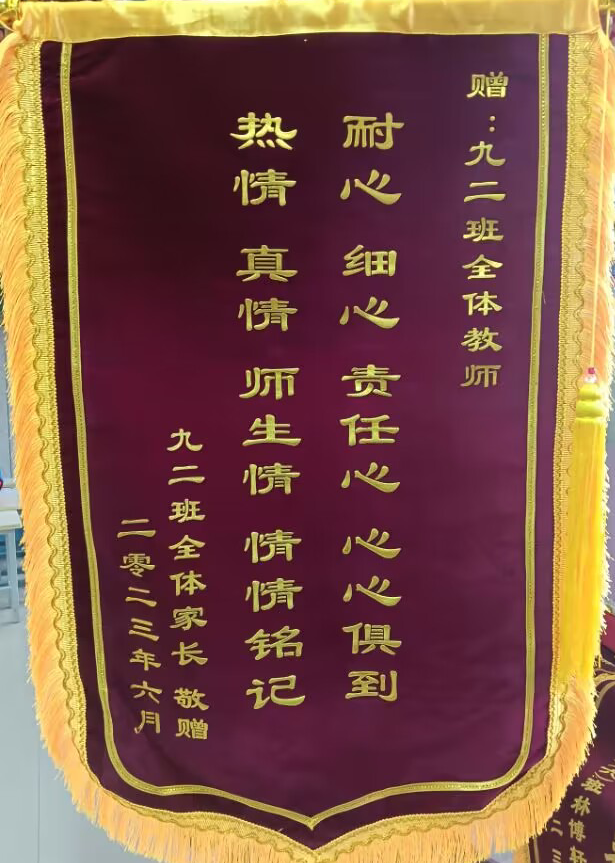 赠：九二班全体教师
耐心 细心 责任心 心心俱到
热情 真情 师生情 情情铭记
九二班全体家长 敬赠
二零二三年六月
班林博
二三